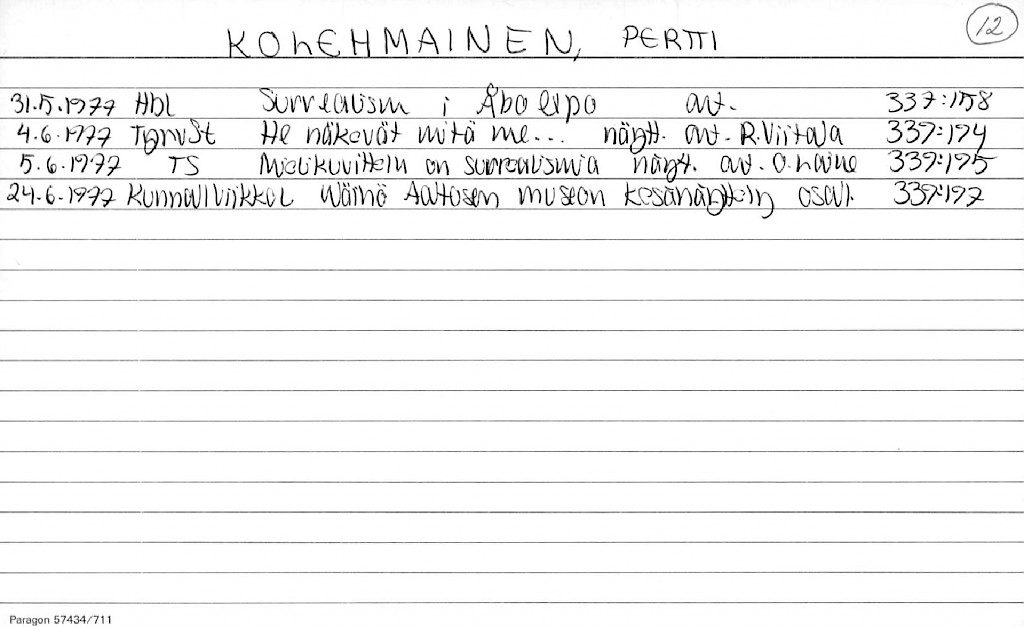 KOhEHMAINEN, PERTTI
12
31.5.1977 Hbl Surrealism i Åbo expo art. 337:158
4.6.1977 TgnvSt He näkevät mitä me... näytt. art. R.Viitala 339:194
5.6.1977 TS Mielikuvitteln on surrealismia näytt. art. O.Laine 339:195
24.6.1977 Kunnall Wäinö Aaltosen museon kesänäytt:in osall. 339:197
Paragon 57434/711